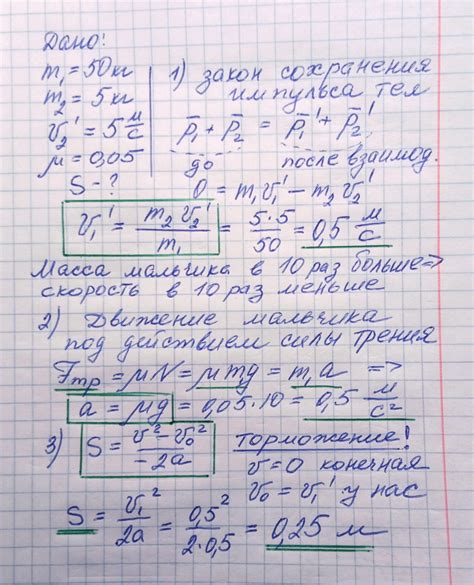 Дано:
m₁ = 50 кг
m₂ = 5 кг
v₂' = 5 м/с
μ = 0,05
S - ?
1) закон сохранения
импульса тел
p̅₁ + p̅₂ = p̅₁' + p̅₂'
до после взаимод.
0 = m₁v₁' − m₂v₂'
v₁' = m₂v₂'/m₁ = 5·5/50 = 0,5 м/с
Масса мальчика в 10 раз больше =>
скорость в 10 раз меньше
2) Движение мальчика
под действием силы трения
Fтр = μN = μmg = m₁a =>
a = μg = 0,05·10 = 0,5 м/с²
3) S = v² − v₀²/−2a
торможение!
v = 0 конечная
v₀ = v₁' у нас
S = v₁²/2a = 0,5²/2·0,5 = 0,25 м